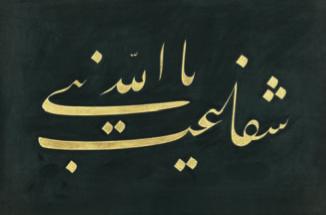 شفاعت يا نبي الله